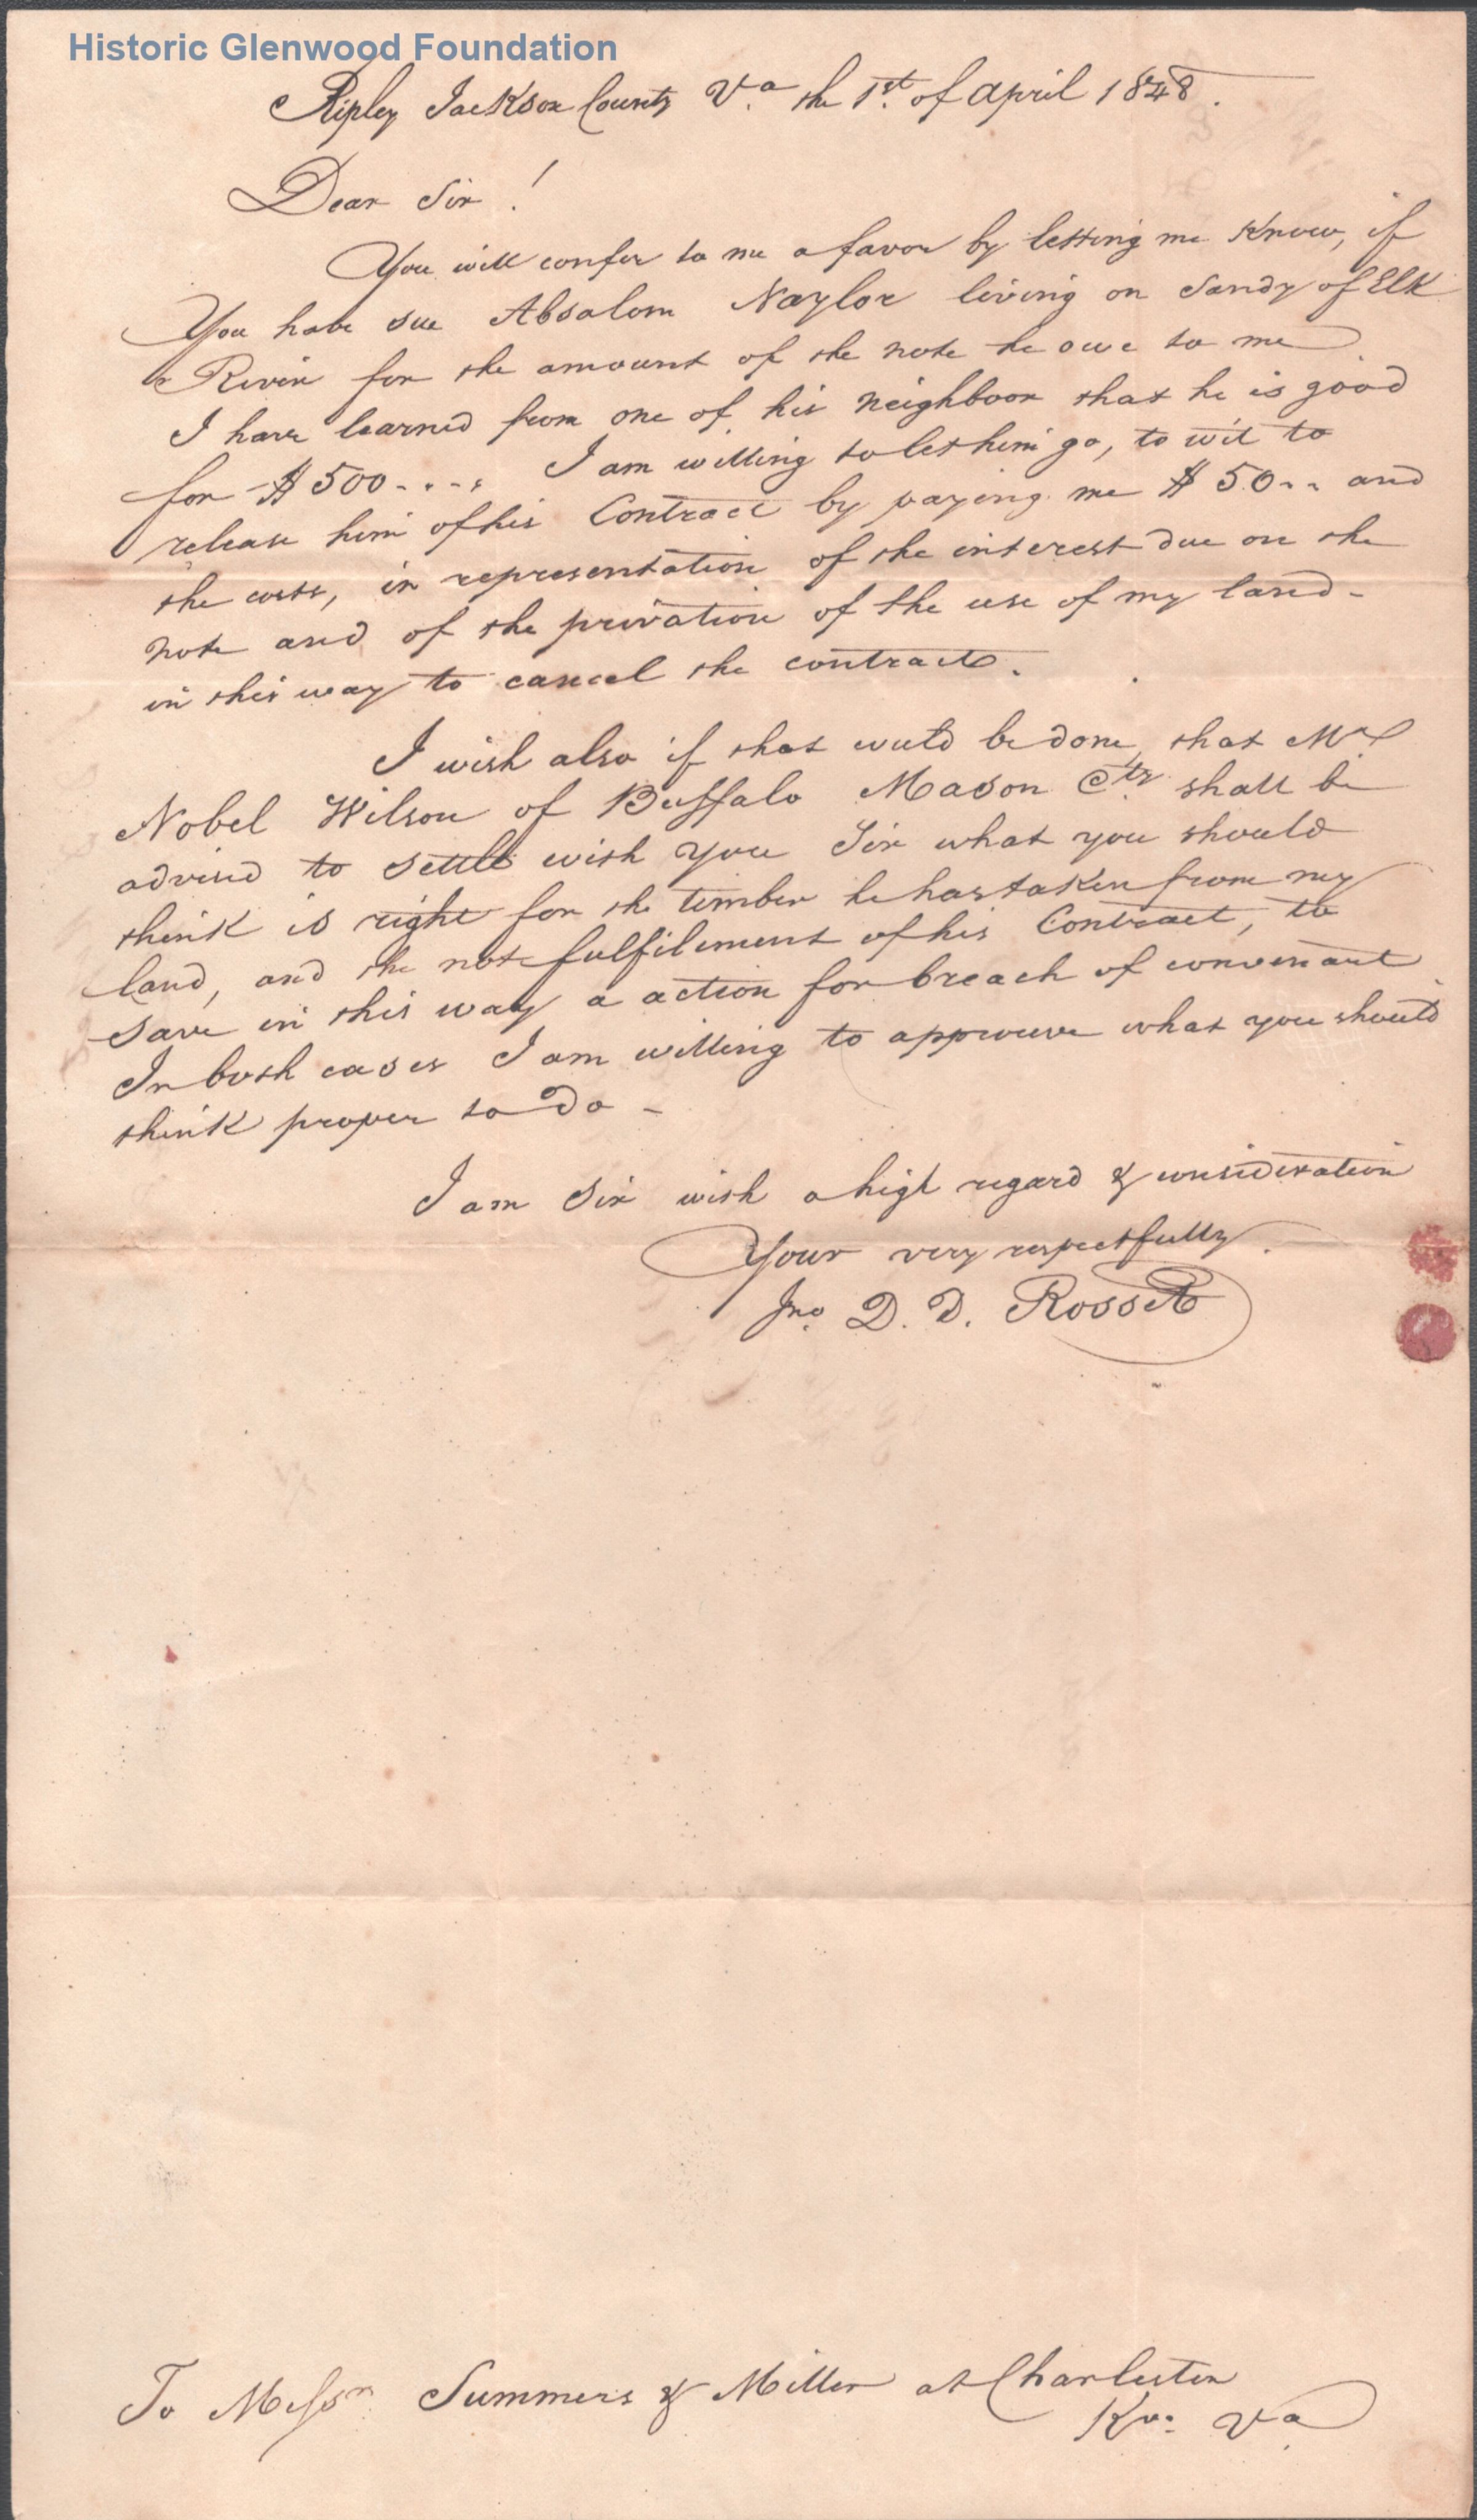 Historic Glenwood Foundation
Ripley Jackson County Va. the 1st. of April 1848.
Dear Sir!
You will confer to me a favor by letting me know, if
You have sue Absalom Naylor living on Sandy of Elk
River for the amount of the note he owe to me.
I have learned from one of his neighboor that he is good
for $500---, I am willing to let him go, to wit to
release him of his Contract by paying me $50-- and
the costs, in representation of the interest due on the
note and of the privation of the use of my land-
in this way to cancel the contract.
I wish also if that could be done, that Mr
Nobel Wilson of Buffalo Mason Cty shall be
advised to settle with you Sir what you should
think is right for the timber he has taken from my
land, and the not fulfilement of his Contract, to
save in this way a action for breach of convenant
In both cases I am willing to approuve what you should
think proper to do -
I am Sir with a high regard & consideration
Your very respectfully.
Jno. D. D. Rosset
To Messrs Summers & Miller at Charleston
Ka: Va